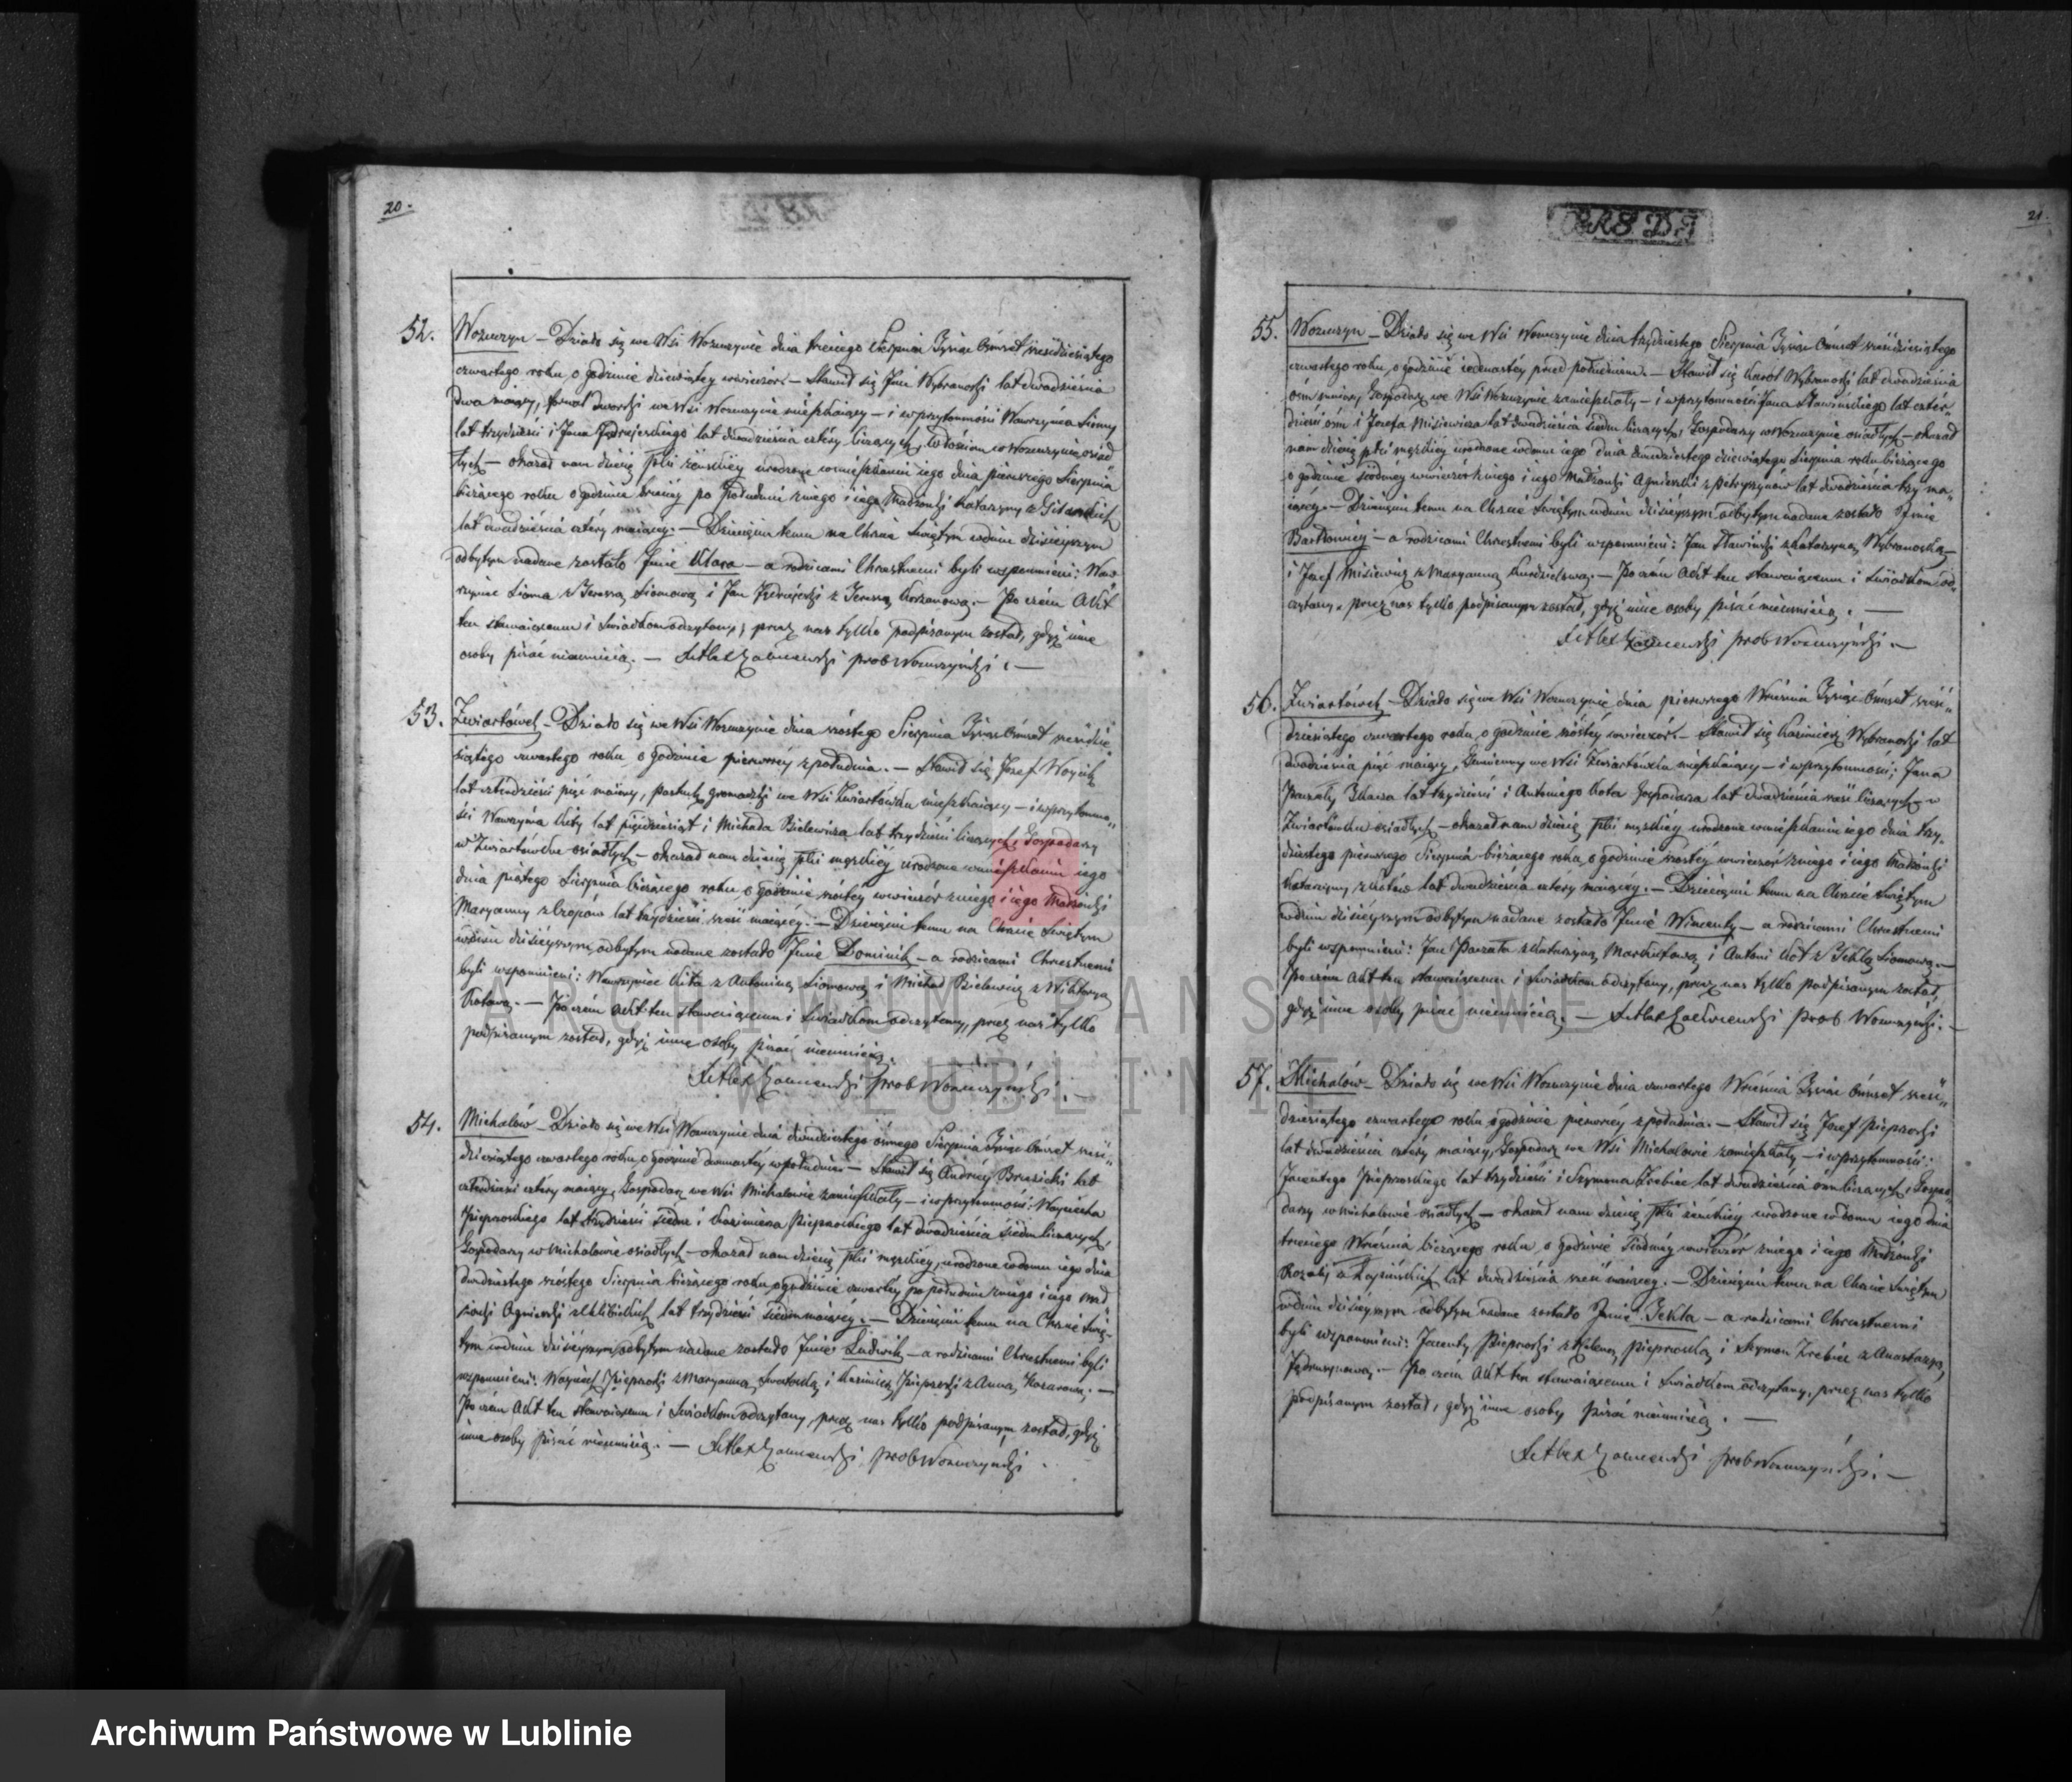 20.
52. Wożuczyn – Działo się we Wsi Wożuczynie dnia trzeciego Sierpnia Tysiąc Ośmset sześćdziesiątego
czwartego roku o godzinie dziewiątey wieczór. – Stawił się Jan Wybranoski lat dwadzieścia
dwa maiący, fornal dworski we Wsi Wożuczynie mieszkaiący – i w przytomności Wawrzyńca Sioma
lat trzydzieści i Jana Jędrujeskiego lat dwadzieścia cztery liczących, Włościan w Wożuczynie osiad
łych – okazał nam dziecię płci żeńskiey urodzone w mieszkaniu iego dnia pierwszego Sierpnia
bieżącego roku o godzinie trzeciey po południu z niego i iego Małżonki Katarzyny z
lat dwadzieścia cztery maiącey. – Dziecięciu temu na Chrzcie Świętym w dniu dzisieyszym
odbytym nadane zostało Imie Klara – a rodzicami Chrzestnemi byli wspomnieni: Waw
rzyniec Sioma z Teressą Siomową i Jan Jędrujeski z Teressą. – Po czém Akt
ten stawaiącemu i Świadkom odczytany, przez nas tylko podpisanym został, gdyż inne
osoby pisać nieumieią. – prob Wożuczyński. –
53. Zwiartówek – Działo się we Wsi Wożuczynie dnia szóstego Sierpnia Tysiąc Ośmset sześćdzie
siątego czwartego roku o godzinie pierwszéy z południa. – Stawił się Józef Woycik
lat czterdzieści pięć maiący, pastuch gromadzki we Wsi Zwiartówku mieszkaiący – i w przytomno„
ści Wawrzyńca Kity lat pięćdziesiąt i Michała Bielewicza lat trzydzieści liczących, Gospodarzy
w Zwiartówku osiadłych – okazał nam dziecię płci męzkiéy urodzone w mieszkaniu iego
dnia piątego Sierpnia bieżącego roku, o godzinie szóstey wieczór z niego i iego Małżonki
Maryanny z lat trzydzieści sześć maiącéy. – Dziecięciu temu na Chrzcie Świętym
w dniu dzisieyszym odbytym nadane zostało Imie Dominik – a rodzicami Chrzestnemi
byli wspomnieni: Wawrzyniec Kita z Antoniną Siomową i Michał Bielewicz z Wiktoryą
Kotową. – Po czém Akt ten stawaiącemu i Świadkom odczytany, przez nas tylko
podpisanym został, gdyż inne osoby pisać nieumieią.
prob Wożuczyński. –
54. Michalów – Działo się we Wsi Wożuczynie dnia dwudziestego ósmego Sierpnia Tysiąc Ośmset sześć„
dziesiątego czwartego roku o godzinie dwunastéy w południe – Stawił się Andrzéy Bruzicki lat
czterdzieści cztery maiący, Gospodarz we Wsi Michalowie zamieszkały – i w przytomności: Woyciecha
Pieprzoskiego lat trzydzieści siedm i Kazimierza Pieprzoskiego lat dwadzieścia siedm liczących,
Gospodarzy w Michalowie osiadłych – okazał nam dziecię płci męzkiéy, urodzone w domu iego dnia
dwudziestego szóstego Sierpnia bieżącego roku, o godzinie czwartey po południu z niego i iego Mał
żonki Agnieszki z lat trzydzieści siedm maiącéy. – Dziecięciu temu na Chrzcie Świę-
tym w dniu dzisieyszym odbytym nadane zostało Imie Ludwik – a rodzicami Chrzestnemi byli
wspomnieni: Woyciech Pieprzoski z Maryanną i Kazimierz Pieprzoski z Anną. –
Po czém Akt ten stawaiącemu i Świadkom odczytany, przez nas tylko podpisanym został, gdyż
inne osoby pisać nieumieią. – prob Wożuczyński
21.
55. Wożuczyn – Działo się we Wsi Wożuczynie dnia trzydziestego Sierpnia Tysiąc Ośmset sześćdziesiątego
czwartego roku, o godzinie iedenastéy przed południem. – Stawił się Karol Wybranoski lat dwadzieścia
ośm maiący, Gospodarz we Wsi Wożuczynie zamieszkały – i w przytomności Jana Sławińskiego lat czter„
dzieści ośm i Józefa Misiewicza lat dwadzieścia siedm liczących, Gospodarzy w Wożuczynie osiadłych – okazał
nam dziecię płci męzkiéy urodzone w domu iego dnia dwudziestego dziewiątego Sierpnia roku bieżącego
o godzinie siódméy wieczór z niego i iego Małżonki Agnieszki z Pętryszynów lat dwadzieścia trzy ma„
iącéy. – Dziecięciu temu na Chrzcie Świętym w dniu dzisieyszym odbytym nadane zostało Imie
Bartłomiéy – a rodzicami Chrzestnemi byli wspomnieni: Jan Sławiński z Katarzyną Wybranoską –
i Józef Misiewicz z Maryanną. – Po czém Akt ten stawaiącemu i Świadkom od„
czytany, przez nas tylko podpisanym został, gdyż inne osoby pisać nieumieią. –
prob Wożuczyński. –
56. Zwiartówek – Działo się we Wsi Wożuczynie dnia pierwszego Września Tysiąc Ośmset sześć„
dziesiątego czwartego roku, o godzinie szóstéy wieczór. – Stawił się Kazimierz Wybranoski lat
dwadzieścia pięć maiący, Gumienny we Wsi Zwiartówku mieszkaiący – i w przytomności: Jana
lat trzydzieści i Antoniego Kota Gospodarza lat dwadzieścia sześć liczących – w
Zwiartówku osiadłych – okazał nam dziecię płci męzkiéy urodzone w mieszkaniu iego dnia trzy„
dziestego pierwszego Sierpnia bieżącego roku, o godzinie szóstéy wieczór z niego i iego Małżonki
Katarzyny z Kotów lat dwadzieścia cztery maiącéy. – Dziecięciu temu na Chrzcie Świętym
w dniu dzisieyszym odbytym nadane zostało Imie Wincenty – a rodzicami Chrzestnemi
byli wspomnieni: Jan z Katarzyną i Antoni Kot z Teklą Siomową. –
Po czém Akt ten stawaiącemu i Świadkom odczytany, przez nas tylko podpisanym został,
gdyż inne osoby pisać nieumieią. – prob Wożuczyński. –
57. Michalów – Działo się we Wsi Wożuczynie dnia czwartego Września Tysiąc Ośmset sześć„
dziesiątego czwartego roku o godzinie pierwszéy z południa. – Stawił się Józef Pieprzoski
lat dwadzieścia cztery maiący, Gospodarz we Wsi Michalowie zamieszkały – i w przytomności:
Jacentego Pieprzoskiego lat trzydzieści i Szymona Źrebiec lat dwadzieścia ośm liczących, Gospo„
darzy w Michalowie osiadłych – okazał nam dziecię płci żeńskiéy urodzone w domu iego dnia
trzeciego Września bieżącego roku, o godzinie siódméy wieczór z niego i iego Małżonki
Rozalij z lat dwadzieścia sześć maiącey. – Dziecięciu temu na Chrzcie Świętym
w dniu dzisieyszym odbytym nadane zostało Imie Tekla – a rodzicami Chrzestnemi
byli wspomnieni: Jacenty Pieprzoski z Heleną Pieprzoską i Szymon Źrebiec z Anastazyą
Po czém Akt ten stawaiącemu i Świadkom odczytany, przez nas tylko
podpisanym został, gdyż inne osoby pisać nieumieią. –
prob Wożuczyński. –
ARCHIWUM PAŃSTWOWE
W LUBLINIE
Archiwum Państwowe w Lublinie